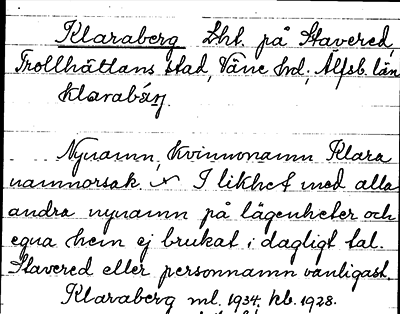 Klaraberg Lht. på Stavered,
Trollhättans stad, Väne hd, Älfsb. län
klarabárj
Nynamn, kvinnonamn Klara
namnorsak. I likhet med alla
andra nynamn på lägenheter och
egna hem ej brukat i dagligt tal.
Stavered eller personnamn vanligast.
Klaraberg ml. 1934. kb. 1928.